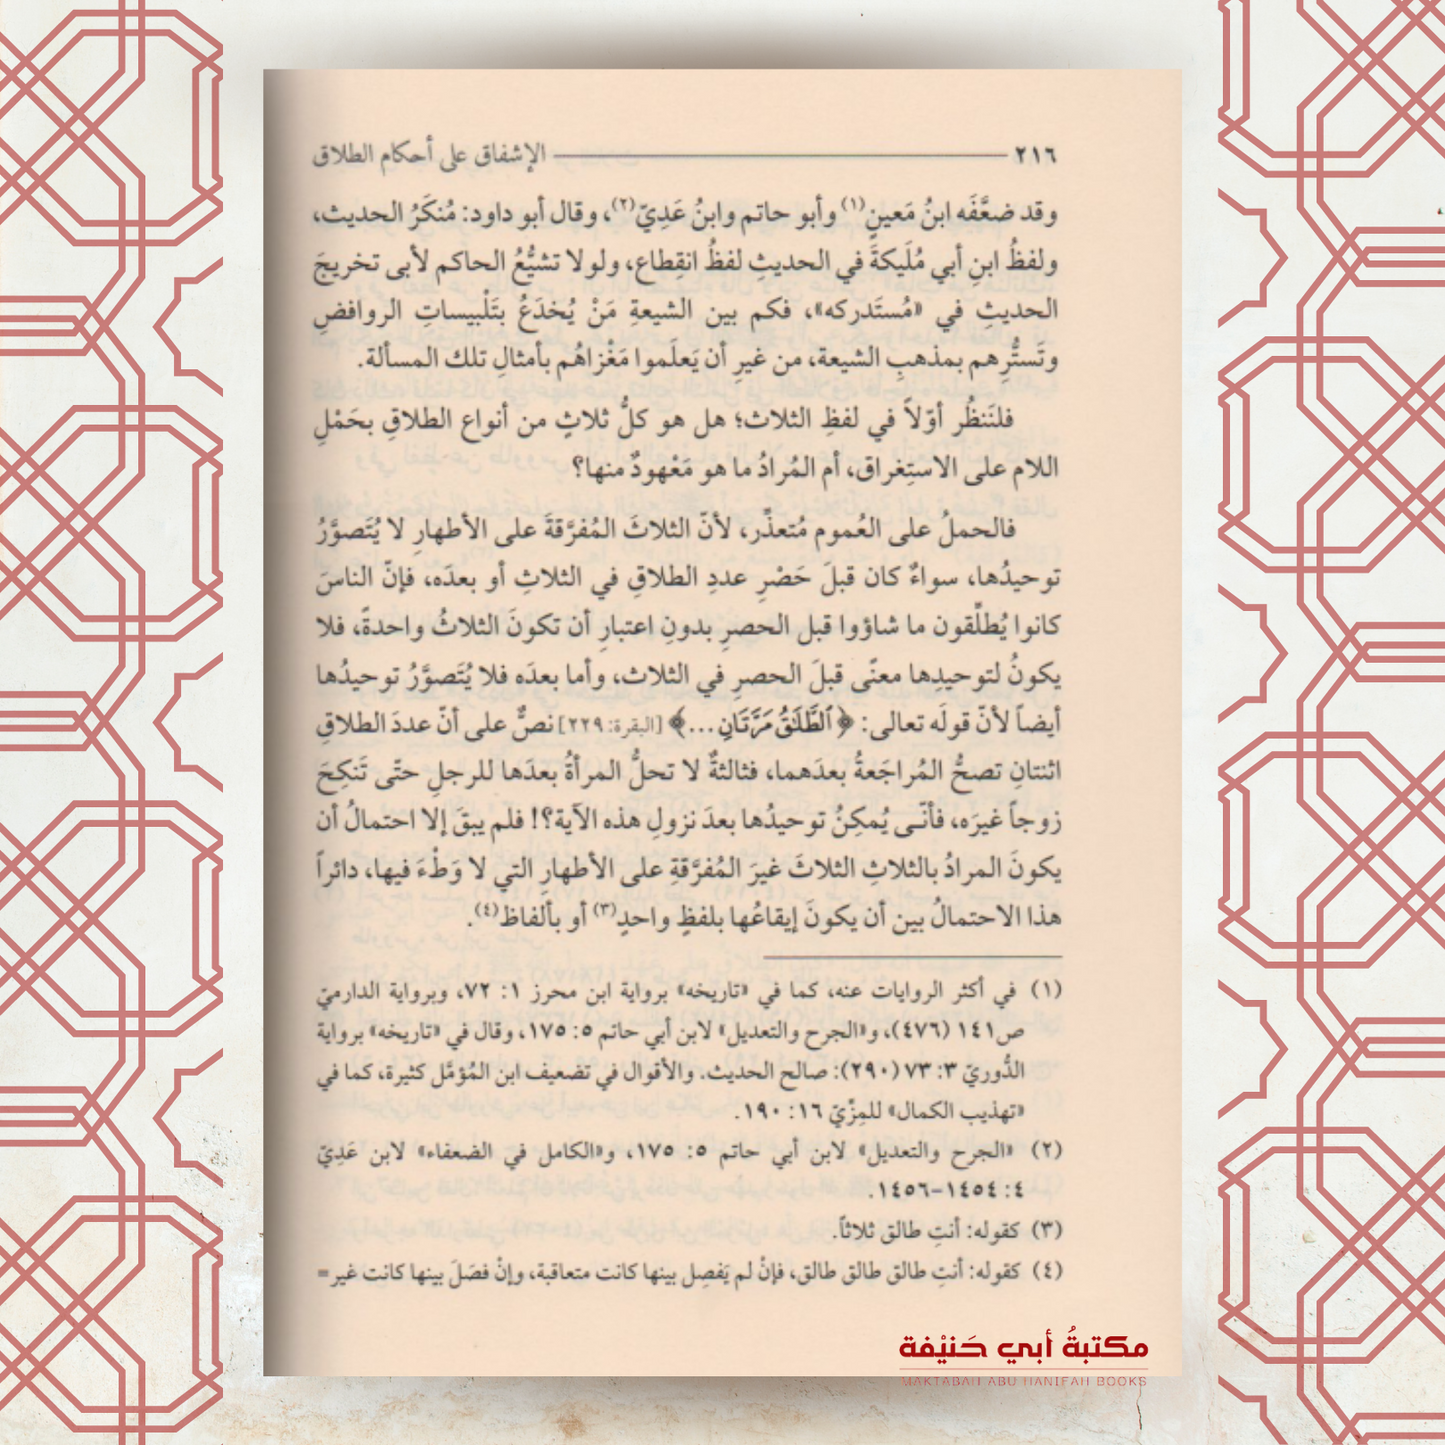 ٢١٦ الإشفاق على أحكام الطلاق
وقد ضعَّفَه ابنُ مَعينٍ(١) وأبو حاتم وابنُ عَدِيّ(٢)، وقال أبو داود: مُنكَرُ الحديث،
ولفظُ ابنِ أبي مُلَيكةَ في الحديثِ لفظُ انقِطاع، ولولا تشيُّعُ الحاكم لأبى تخريجَ
الحديثِ في «مُستَدركه»، فكم بين الشيعةِ مَنْ يُخدَعُ بتَلْبيساتِ الروافضِ
وتَستُّرِهم بمذهبِ الشيعة، من غيرِ أن يَعلَموا مَغْزاهُم بأمثالِ تلك المسألة.
فلنَنظُر أوّلاً في لفظِ الثلاث؛ هل هو كلُّ ثلاثٍ من أنواع الطلاقِ بحَمْلِ
اللام على الاستِغراق، أم المُرادُ ما هو مَعْهودٌ منها؟
فالحملُ على العُموم مُتعذِّر، لأنّ الثلاثَ المُفرَّقةَ على الأطهارِ لا يُتَصوَّرُ
توحيدُها، سواءٌ كان قبلَ حَصْرِ عددِ الطلاقِ في الثلاثِ أو بعدَه، فإنّ الناسَ
كانوا يُطلِّقون ما شاؤوا قبل الحصرِ بدونِ اعتبارِ أن تكونَ الثلاثُ واحدةً، فلا
يكونُ لتوحيدِها معنًى قبلَ الحصرِ في الثلاث، وأما بعدَه فلا يُتَصوَّرُ توحيدُها
أيضاً لأنّ قولَه تعالى: ﴿ٱلطَّلَٰقُ مَرَّتَانِ...﴾ [البقرة: ٢٢٩] نصٌّ على أنّ عددَ الطلاقِ
اثنتانِ تصحُّ المُراجَعةُ بعدَهما، فثالثةٌ لا تحلُّ المرأةُ بعدَها للرجلِ حتّى تَنكِحَ
زوجاً غيرَه، فأنّى يُمكِنُ توحيدُها بعدَ نزولِ هذه الآية؟! فلم يبقَ إلا احتمالُ أن
يكونَ المرادُ بالثلاثِ الثلاثَ غيرَ المُفرَّقةِ على الأطهارِ التي لا وَطْءَ فيها، دائراً
هذا الاحتمالُ بين أن يكونَ إيقاعُها بلفظٍ واحدٍ(٣) أو بألفاظ(٤).
(١) في أكثر الروايات عنه، كما في «تاريخه» برواية ابن محرز ١: ٧٢، وبرواية الدارميّ
ص١٤١ (٤٧٦)، و«الجرح والتعديل» لابن أبي حاتم ٥: ١٧٥، وقال في «تاريخه» برواية
الدُّوريّ ٣: ٧٣ (٢٩٠): صالح الحديث. والأقوال في تضعيف ابن المُؤمَّل كثيرة، كما في
«تهذيب الكمال» للمِزِّيّ ١٦: ١٩٠.
(٢) «الجرح والتعديل» لابن أبي حاتم ٥: ١٧٥، و«الكامل في الضعفاء» لابن عَدِيّ
٤: ١٤٥٤-١٤٥٦.
(٣) كقوله: أنتِ طالق ثلاثاً.
(٤) كقوله: أنتِ طالق طالق طالق، فإنْ لم يَفصِل بينها كانت متعاقبة، وإنْ فصَلَ بينها كانت غير=
مكتبةُ أبي حَنيْفة
MAKTABAH ABU HANIFAH BOOKS